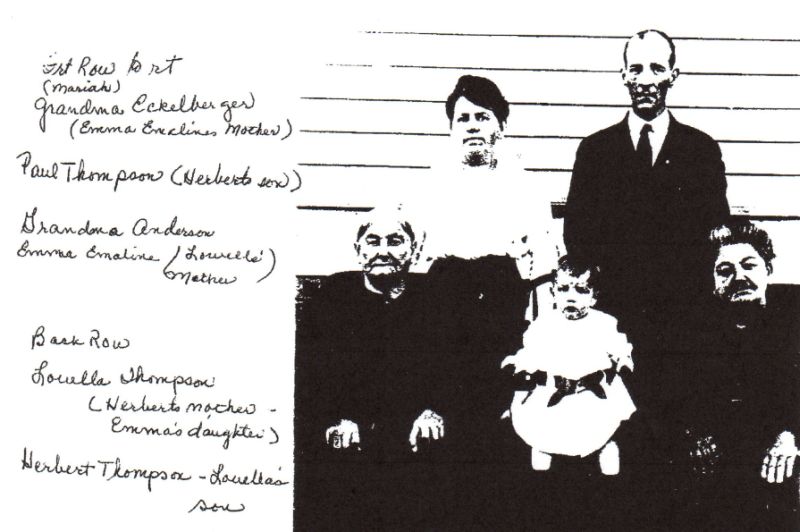 Frt Row to rt
(Mariah)
Grandma Eckelberger
(Emma Emalines Mother)
Paul Thompson (Herberts son)
Grandma Anderson
Emma Emaline (Louellas'
Mother)
Back Row
Louella Thompson
(Herberts mother -
Emma's daughter)
Herbert Thompson - Louella's
son